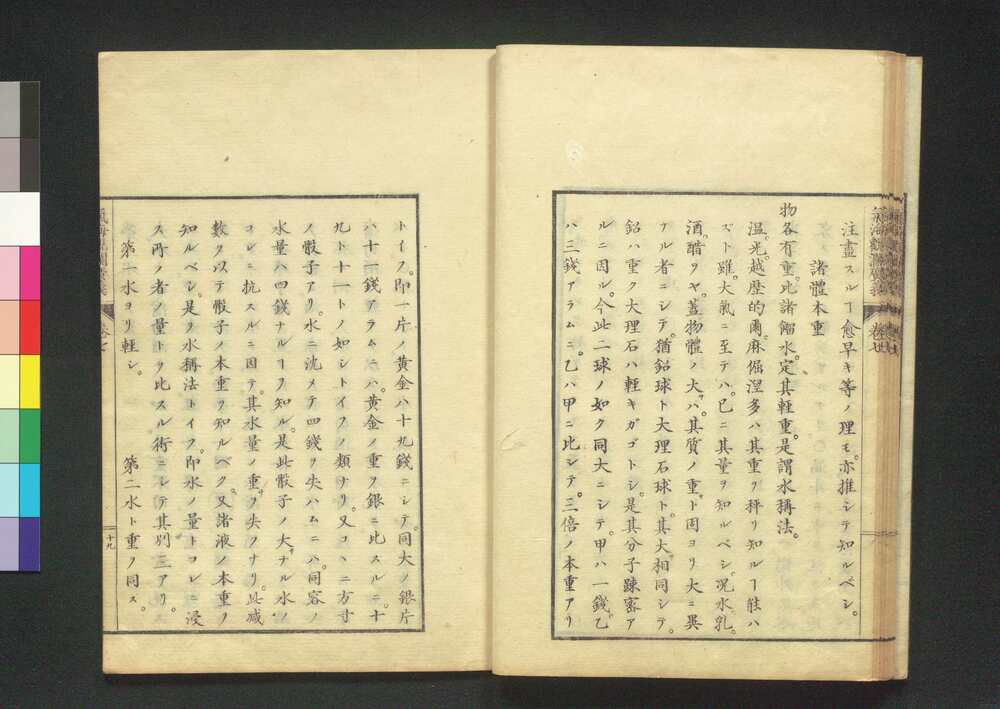 注盡スルヿ愈早キ等ノ理モ。亦推シテ知ルベシ。
諸體本重
物各有重。比諸觸水。定其輕重。是謂水稱法。
温。光。越歴的爾。麻倔涅多ハ其重ヲ秤リ知ルヿ能ハ
ズト雖。大氣ニ至テハ。已ニ其量ヲ知ルベシ。况水。乳。
酒。醋ヲヤ。蓋物體ノ大ハ。其質ノ重ト固ヨリ大ニ異
ナル者ニシテ。猶鉛球ト大理石球ト。其大相同シテ。
鉛ハ重ク大理石ハ輕キガゴトシ。是其分子疎密ア
ルニ因ル。今此二球ノ如ク同大ニシテ。甲ハ一錢。乙
ハ三錢アラムニ。乙ハ甲ニ比シテ。三倍ノ本重アリ
トイフ。即一片ノ黄金ハ十九錢ニシテ。同大ノ銀片
ハ十一錢アラムニハ。黄金ノ重ヲ銀ニ比スルニ。十
九ト十一トノ如シトイフノ類ナリ。又コヽニ方寸
ノ骰子アリ。水ニ沈メテ四錢ヲ失ハムニハ。同容ノ
水量ハ四錢ナルヿヲ知ル。是此骰子ノ大ナル水ノ
コレニ抗スルニ因テ。其水量ノ重ヲ失フナリ。此減
數ヲ以テ骰子ノ本重ヲ知ルベク。又諸液ノ本重ヲ
知ルベシ。是ヲ水稱法トイフ。即水ノ量トコレニ浸
ス所ノ者ノ量トヲ比スル術ニシテ其別三アリ。
第一水ヨリ輕シ。 第二水ト重ヲ同ス。
卷七
十九